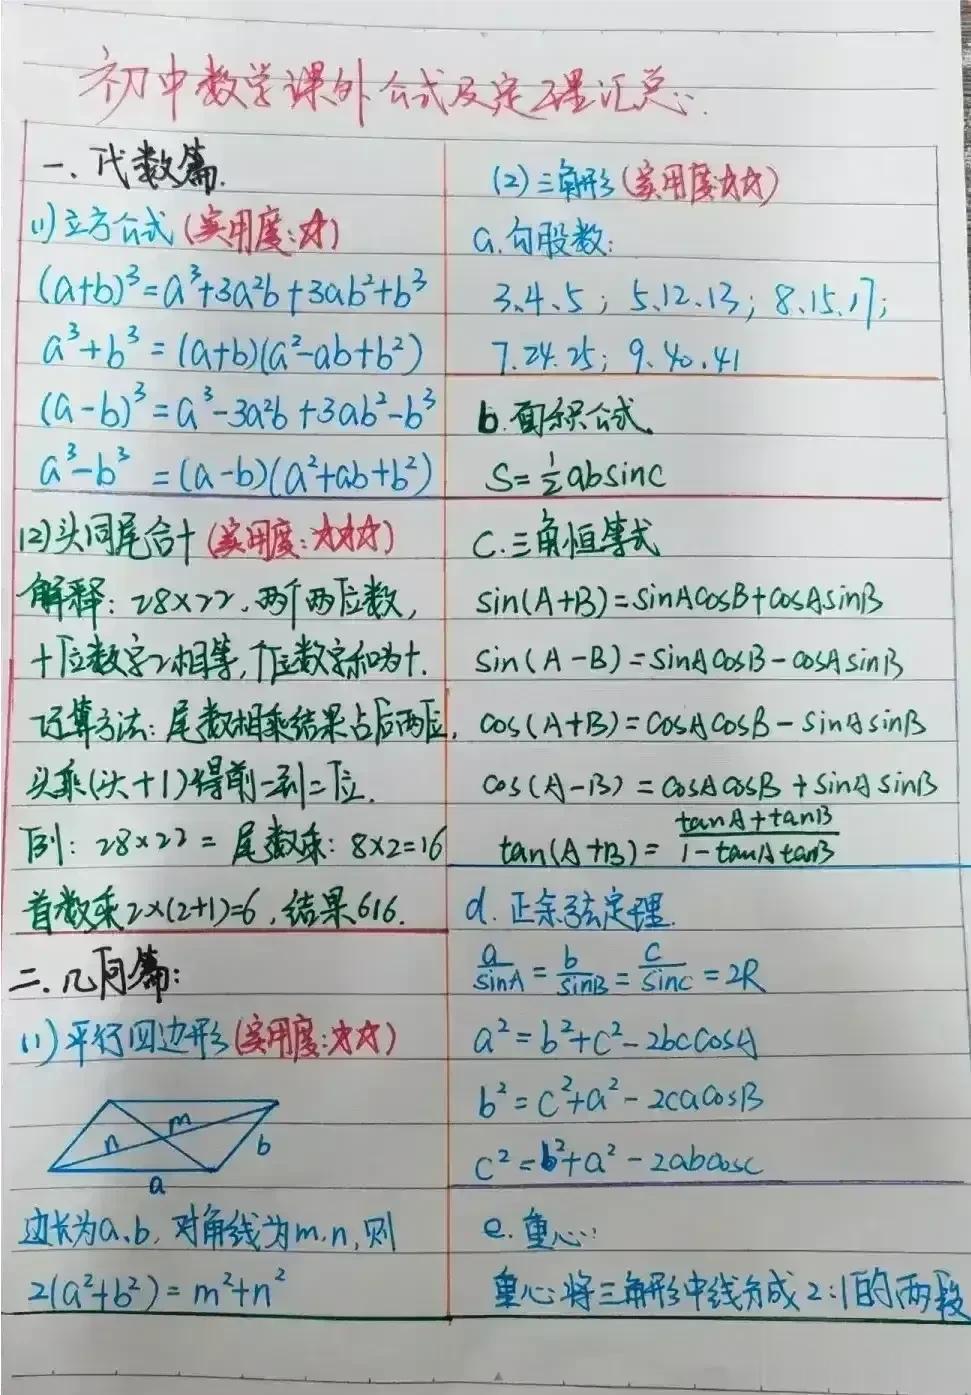 初中数学课外公式及定理汇总:
一、代数篇.
(1)立方公式(实用度:☆)
(a+b)³=a³+3a²b+3ab²+b³
a³+b³=(a+b)(a²-ab+b²)
(a-b)³=a³-3a²b+3ab²-b³
a³-b³=(a-b)(a²+ab+b²)
(2)头同尾合十(实用度:☆☆☆)
解释:28×22,两个两位数,
十位数字2相等,个位数字和为十.
运算方法:尾数相乘结果占后两位,
头乘(头+1)得前一到二位.
例:28×22=尾数乘:8×2=16
首数乘2×(2+1)=6,结果616.
二、几何篇:
(1)平行四边形(实用度:☆☆)
n
m
b
a
边长为a、b,对角线为m、n,则
2(a²+b²)=m²+n²
(2)三角形(实用度☆☆)
a.勾股数:
3、4、5;5、12、13;8、15、17;
7、24、25;9、40、41
b.面积公式
S=½absinC
C.三角恒等式
sin(A+B)=sinAcosB+cosAsinB
sin(A-B)=sinAcosB-cosAsinB
cos(A+B)=cosAcosB-sinAsinB
cos(A-B)=cosAcosB+sinAsinB
tan(A+B)=(tanA+tanB)/(1-tanAtanB)
d.正余弦定理.
a/sinA=b/sinB=c/sinC=2R
a²=b²+c²-2bccosA
b²=c²+a²-2cacosB
c²=b²+a²-2abcosc
e.重心:
重心将三角形中线分成2:1的两段